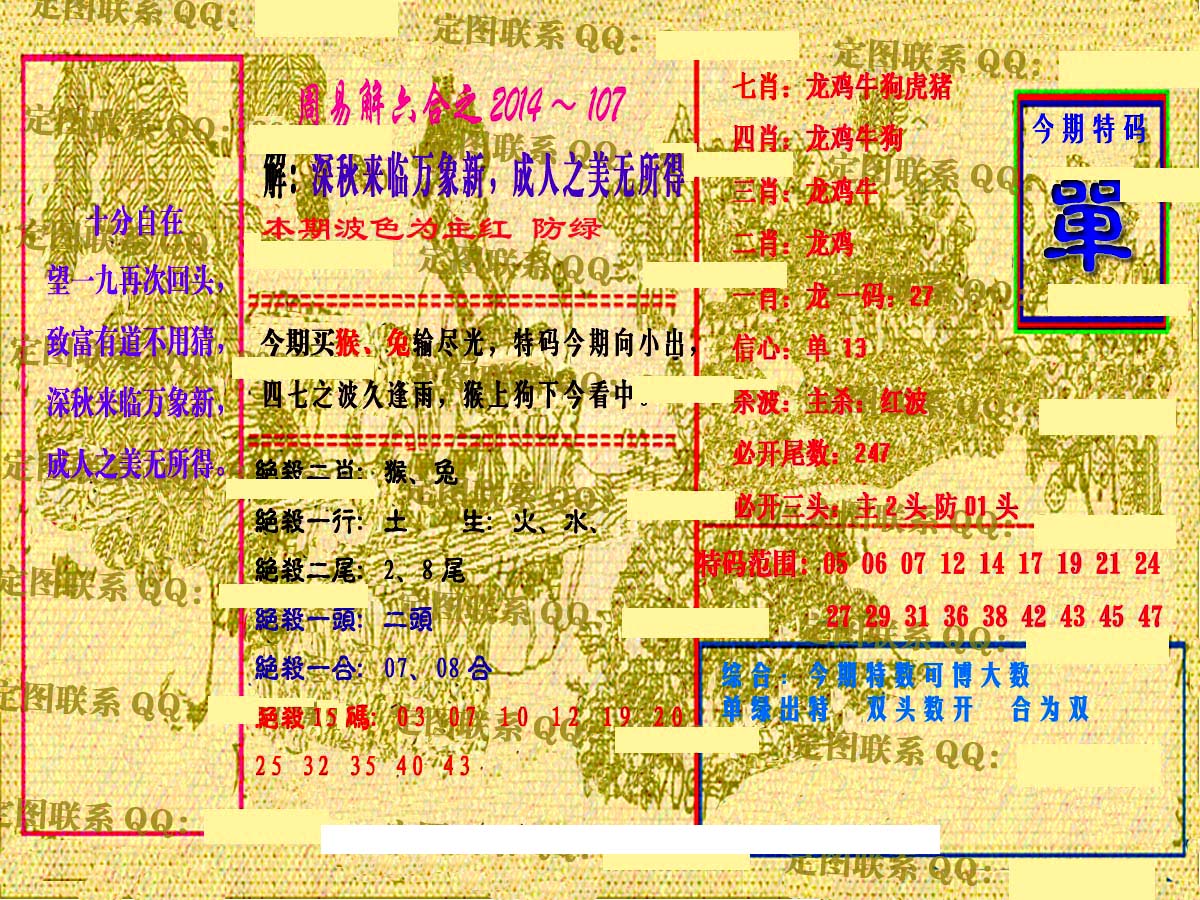 周易解六合之2014～107
解：深秋来临万象新，成人之美无所得
本期波色为主红 防绿
十分自在
望一九再次回头，
致富有道不用猜，
深秋来临万象新，
成人之美无所得。
今期买猴、兔输尽光，特码今期向小出，
四七之波久逢雨，猴上狗下今看中。
絕殺二肖：猴、兔
絕殺一行：土 生：火、水、
絕殺二尾：2、8尾
絕殺一頭：二頭
絕殺一合：07、08合
絕殺15碼：03 07 10 12 19 20
25 32 35 40 43
七肖：龙鸡牛狗虎猪
四肖：龙鸡牛狗
三肖：龙鸡牛
二肖：龙鸡
一肖：龙 一码：27
信心：单 13
杀波：主杀：红波
必开尾数：247
必开三头：主2头防01头
今期特码
單
特码范围：05 06 07 12 14 17 19 21 24
27 29 31 36 38 42 43 45 47
综合：今期特数可博大数
单绿出特 双头数开 合为双
定图联系QQ：
定图联系QQ：
定图联系QQ：
定图联系QQ：
定图联系QQ：
定图联系QQ：
定图联系QQ：
定图联系QQ：